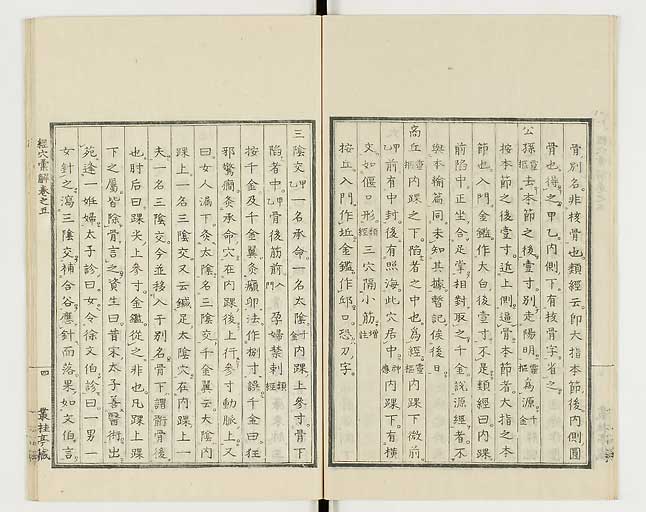 骨別名。非核骨也。類經云。卽大指本節後內側圓
骨也。得之。甲乙內側下有核骨字。省之。
公孫靈樞去本節之後壹寸。別走陽明。靈樞爲源。千金
按本節之後壹寸。近上側過骨。本節者。大指之本
節也。入門金鑑作大白後壹寸。不是。類經曰。內踝
前陷中。正坐合足掌相對取之。千金說源經者。不
與本輸篇同。未知其據。暫記俟後日。
商丘靈樞內踝之下。陷者之中也。爲經。靈樞內踝下微前。
甲乙前有中封。後有照海。此穴居中。神應內踝下。有橫
文如偃口形。類經三穴隔小筋。增註
按丘。入門作坵。金鑑作邱。口恐刀字。
三陰交甲乙一名承命。一名太陰。千金內踝上參寸。骨下
陷者中。甲乙骨後筋前。入門孕婦禁刺。類經
按千金及千金翼灸癲卯法作捌寸。誤。千金曰。狂
邪驚癎。灸承命。穴在內踝後上行參寸動脈上。又
曰。女人漏下。灸太陰。名三陰交。千金翼云。大陰內
踝上。一名三陰交。又云。鍼足太陰穴。在內踝上一
夫。一名三陰交。今並移入于別名。骨下謂䯒骨後
也。肘后曰。踝尖上參寸。金鑑從之。非也。凡踝上踝
下之屬。皆除骨言之。資生曰。昔宋太子善醫術。出
苑逢一姙婦。太子診曰。女。令徐文伯診曰。一男一
女。針之。瀉三陰交。補合谷。應針而落。果如文伯言。
經穴彙解卷之五
四
叢桂亭藏